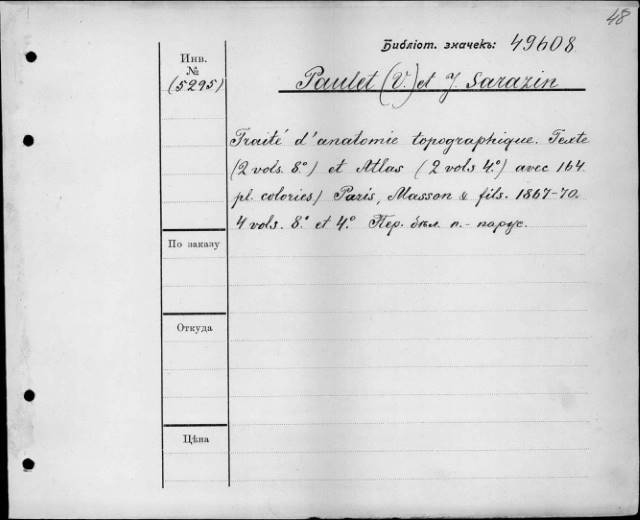 48
Библіот. значекъ: 49608
Инв.
№
(5295)
Paulet (V.) et J. Sarazin
Traité d'anatomie topographique. Texte
(2 vols. 8.º) et Atlas (2 vols 4.º) avec 164
pl. colories) Paris, Masson & fils. 1867-70.
4 vols. 8.º et 4.º Пер. бѣл. п.- парус.
По заказу
Откуда
Цѣна